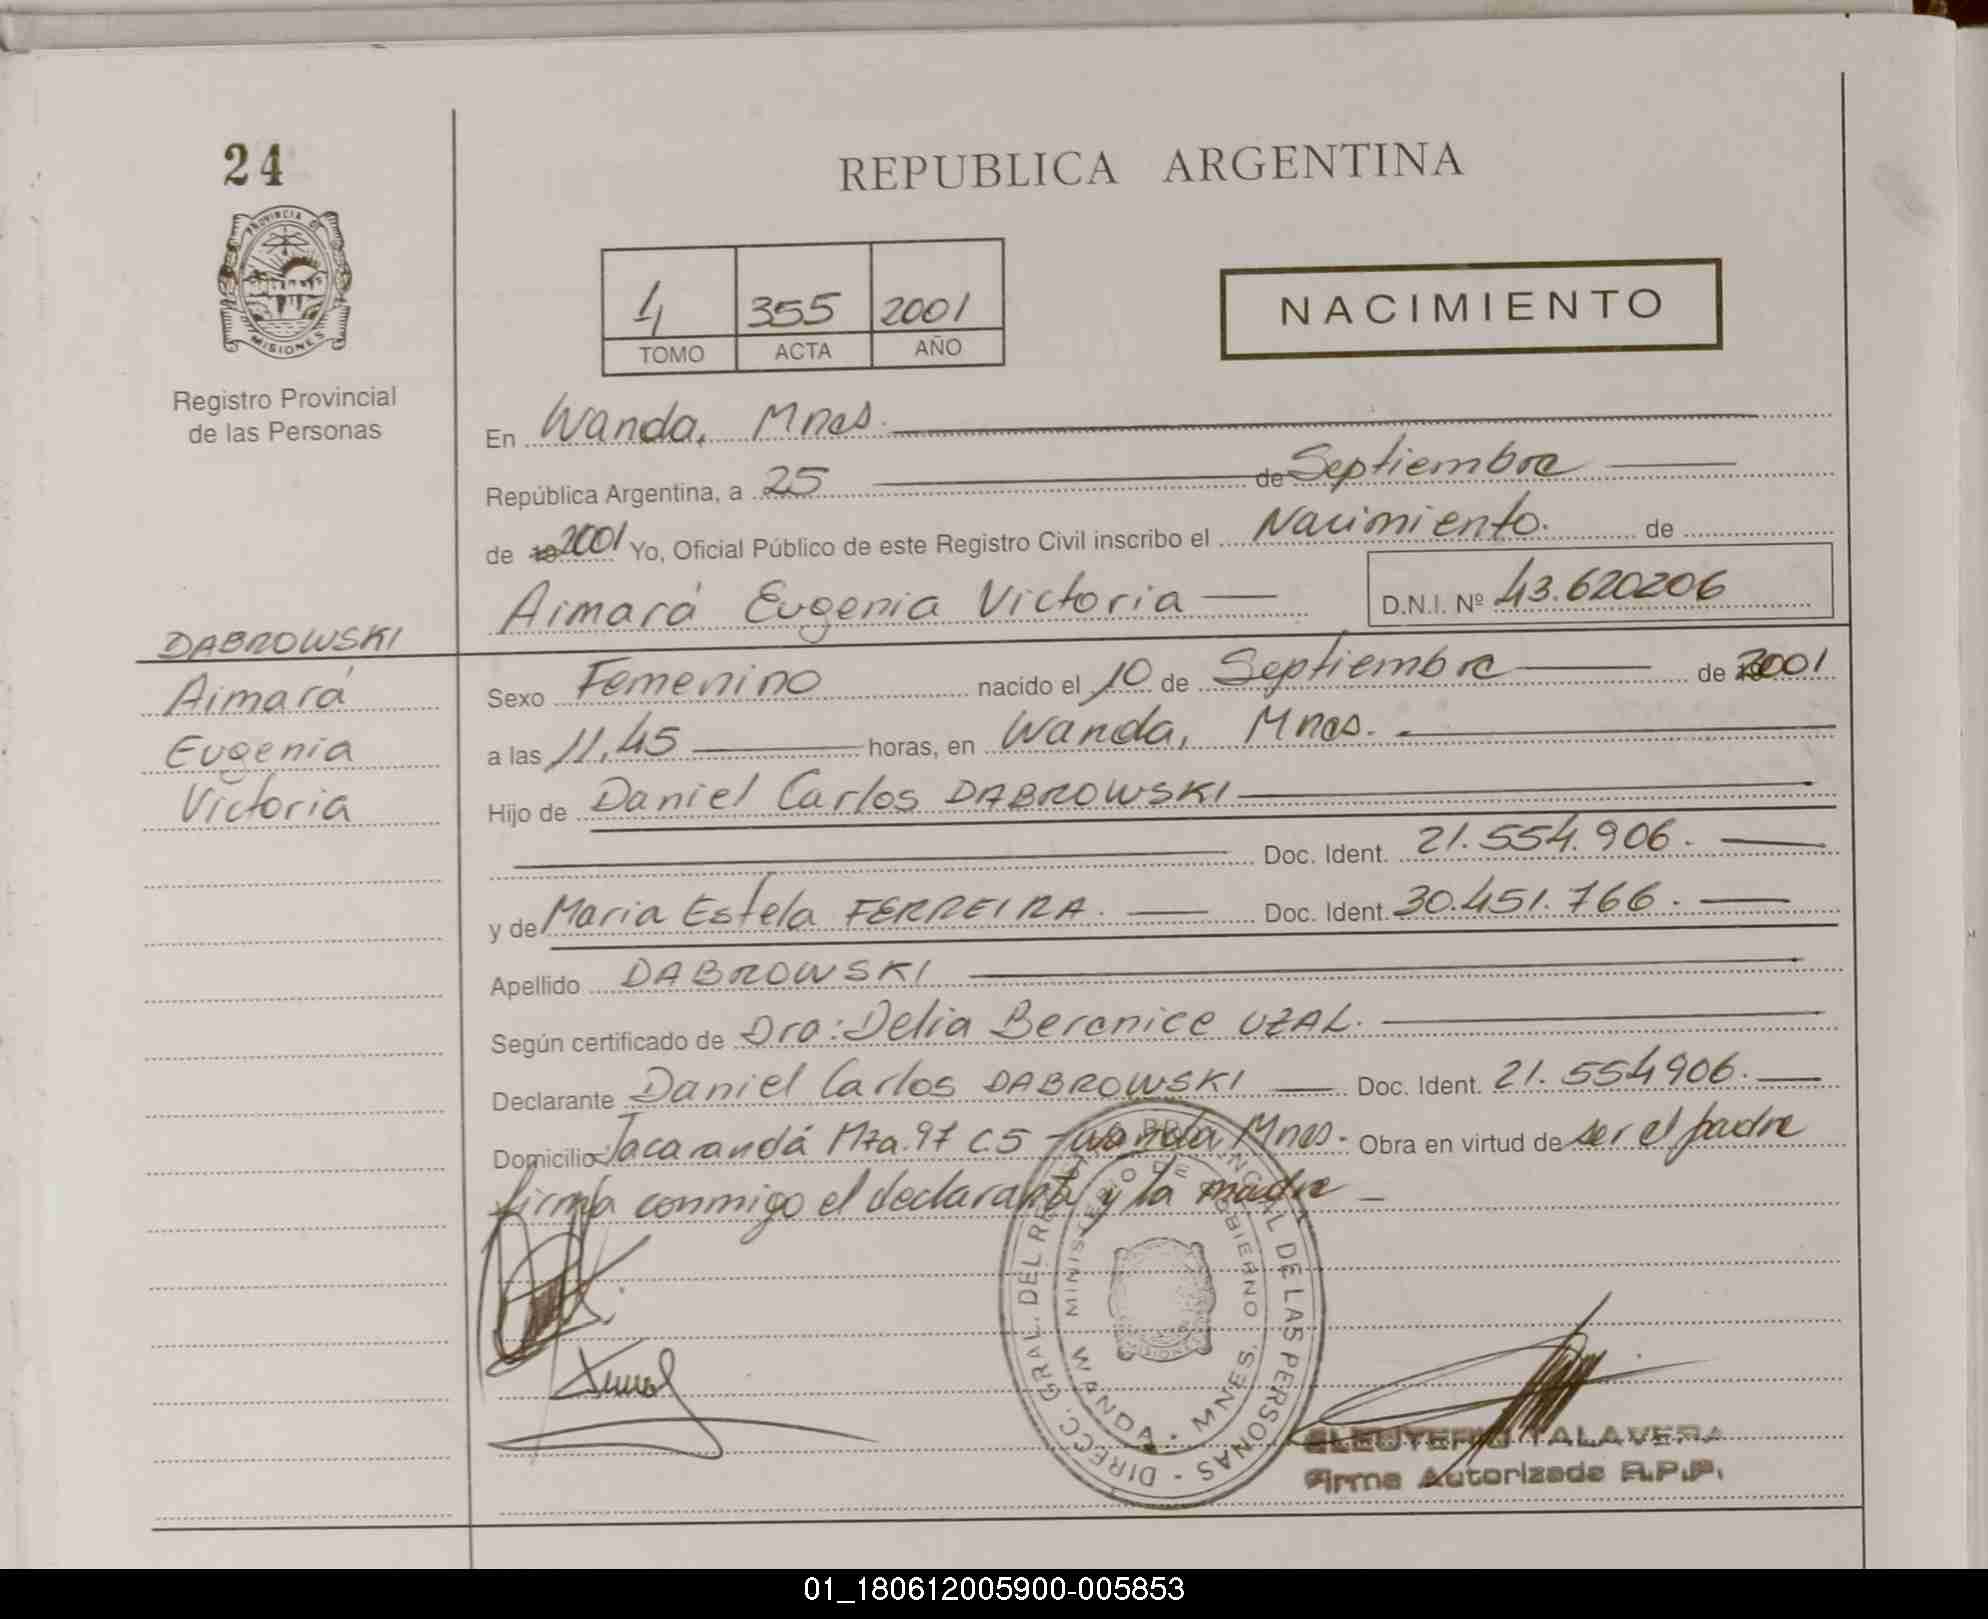 24
PROVINCIA DE
MISIONES
Registro Provincial
de las Personas
REPUBLICA ARGENTINA
4 355 2001
TOMO ACTA AÑO
NACIMIENTO
En Wanda, Mnes.
República Argentina, a 25 de Septiembre
de 19 2001 Yo, Oficial Público de este Registro Civil inscribo el Nacimiento. de
Aimará Eugenia Victoria D.N.I. Nº 43.620206
DABROWSKI
Aimará
Eugenia
Victoria
Sexo Femenino nacido el 10 de Septiembre de 2001
a las 11,45 horas, en Wanda, Mnes.
Hijo de Daniel Carlos DABROWSKI
Doc. Ident. 21.554.906.
y de Maria Estela FERREIRA. Doc. Ident. 30.451.766.
Apellido DABROWSKI
Según certificado de Dra: Delia Berenice UZAL.
Declarante Daniel Carlos DABROWSKI Doc. Ident. 21.554906.
Domicilio Jacarandá Mza. 97 C5 - Wanda, Mnes. Obra en virtud de ser el padre
firma conmigo el declarante y la madre
DIRECC. GRAL. DEL REGISTRO PROVINCIAL DE LAS PERSONAS
MINISTERIO DE GOBIERNO
WANDA - MNES.
ELEUTERIO TALAVERA
Firma Autorizada R.P.P.
01_180612005900-005853